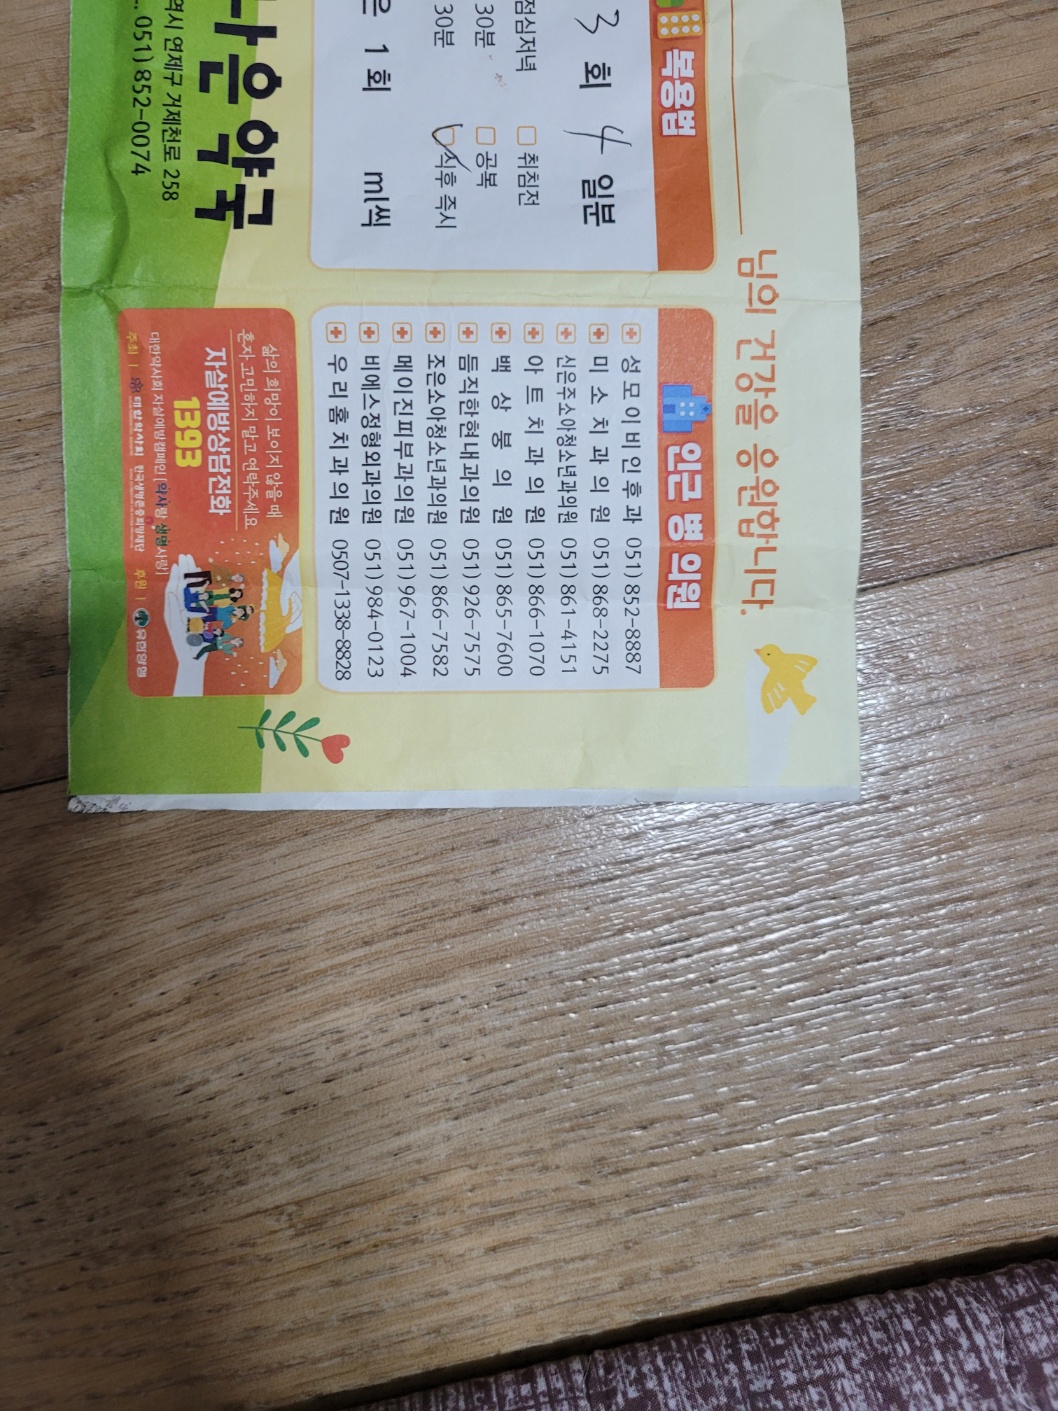 님의 건강을 응원합니다.
복용법
3 회 4 일분
점심저녁 □ 취침전
30분 □ 공복
30분 □ 식후 즉시
은 1 회 ml씩
인근 병 의원
성모이비인후과 051) 852-8887
미소치과의원 051) 868-2275
신은주소아청소년과의원 051) 861-4151
아트치과의원 051) 866-1070
백상봉의원 051) 865-7600
듬직한현내과의원 051) 926-7575
조은소아청소년과의원 051) 866-7582
메이진피부과의원 051) 967-1004
비에스정형외과의원 051) 984-0123
우리홈치과의원 0507-1338-8828
은약국
역시 연제구 거제천로 258
051) 852-0074
삶의 희망이 보이지 않을 때
혼자 고민하지 말고 연락주세요
자살예방상담전화
1393
대한약사회 자살예방캠페인 [약사랑 생명사랑]
주최 | 대한약사회 한국생명존중희망재단 후원 | 유한양행